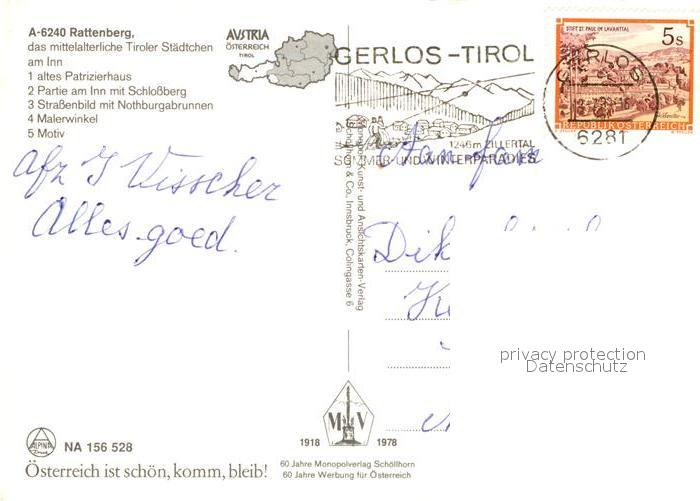 A-6240 Rattenberg,
das mittelalterliche Tiroler Städtchen
am Inn
1 altes Patrizierhaus
2 Partie am Inn mit Schloßberg
3 Straßenbild mit Nothburgabrunnen
4 Malerwinkel
5 Motiv
AUSTRIA
ÖSTERREICH
TIROL
GERLOS-TIROL
1246m ZILLERTAL
SOMMER-UND WINTERPARADIES
STIFT ST. PAUL IM LAVANTTAL
5s
REPUBLIK ÖSTERREICH
GERLOS
6281
afz J Visscher
Alles goed.
Aan fam
Dik
Monopol Kunst- und Ansichtskarten-Verlag
Schöllhorn & Co., Innsbruck, Colingasse 6
privacy protection
Datenschutz
MV
1918 1978
ALPINA
Druck
NA 156 528
Österreich ist schön, komm, bleib!
60 Jahre Monopolverlag Schöllhorn
60 Jahre Werbung für Österreich